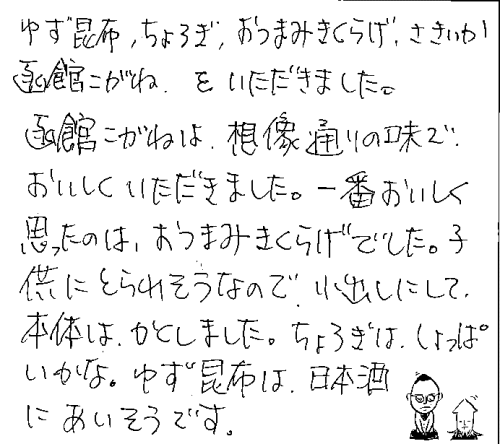 ゆず昆布、ちょろぎ、おつまみきくらげ、さきいか
函館こがね、をいただきました。
函館こがねは、想像通りの味で、
おいしくいただきました。一番おいしく
思ったのは、おつまみきくらげでした。子
供にとられそうなので、小出しにして、
本体は、かくしました。ちょろぎは、しょっぱ
いかな。ゆず昆布は、日本酒
にあいそうです。